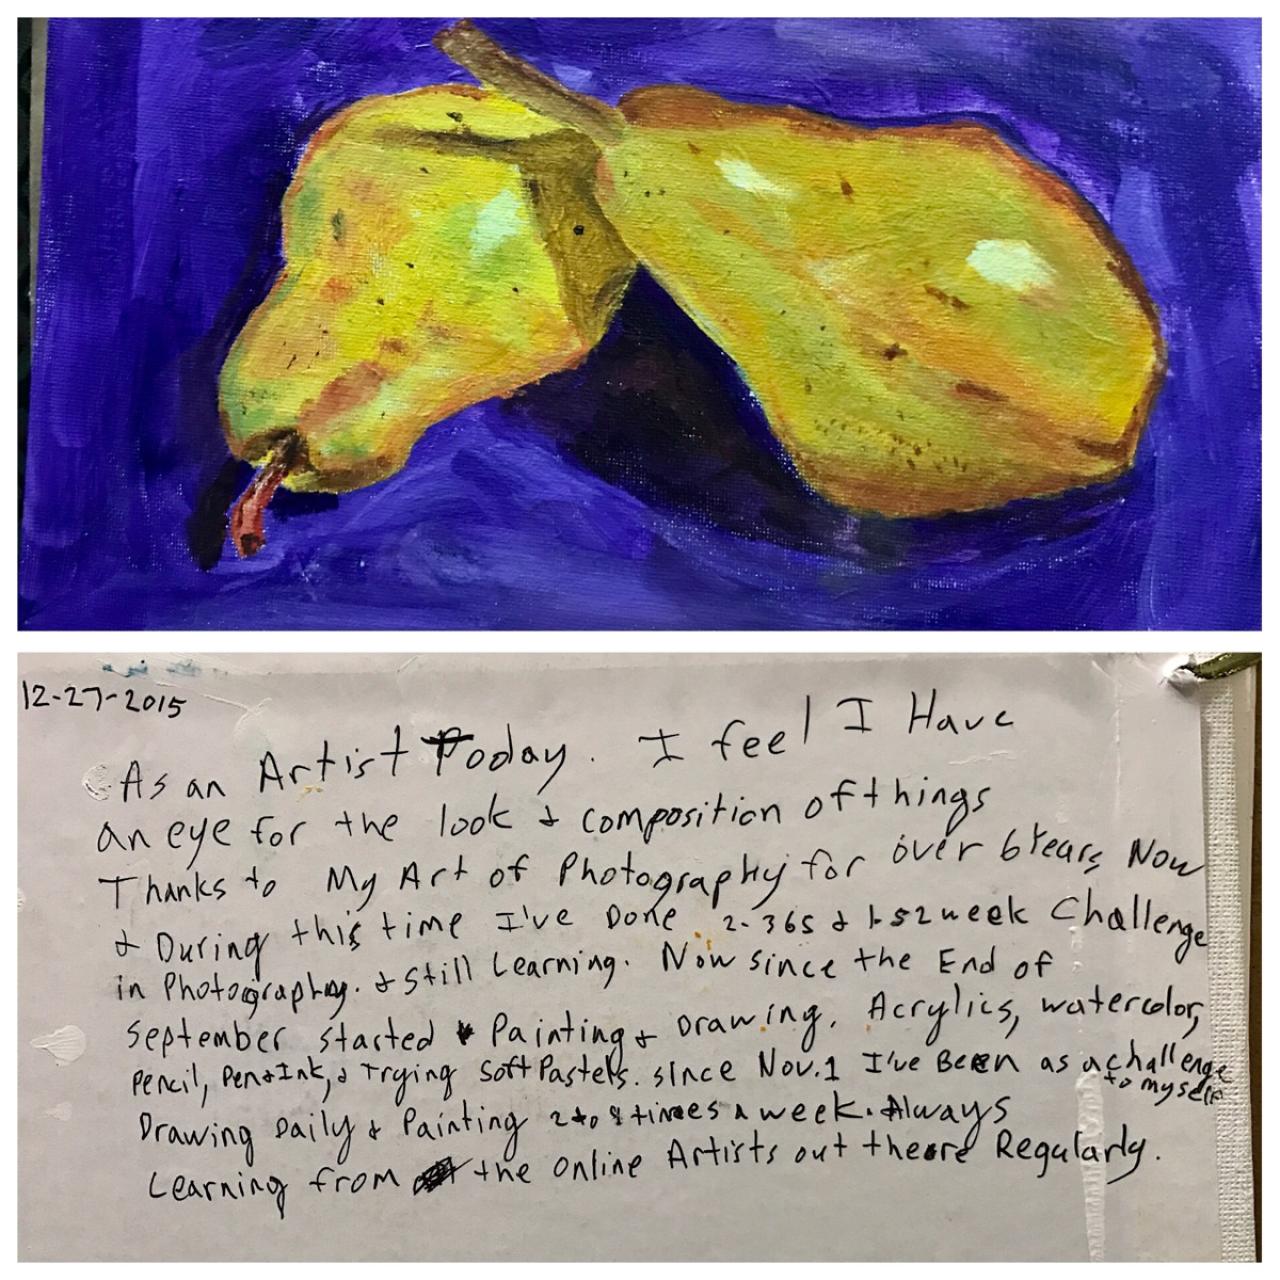 12-27-2015
As an Artist Today. I feel I Have
an eye for the look & composition of things
Thanks to My Art of Photography for over 6 Years Now
& During this time I've Done 2-365 & 1-52 week Challenge
in Photography. & Still Learning. Now since the End of
September started Painting & Drawing. Acrylics, watercolor,
Pencil, Pen & Ink, & Trying Soft Pastels. since Nov.1 I've Been as a challenge
to myself
Drawing Daily & Painting 2 to times a week. Always
Learning from the online Artists out there Regularly.